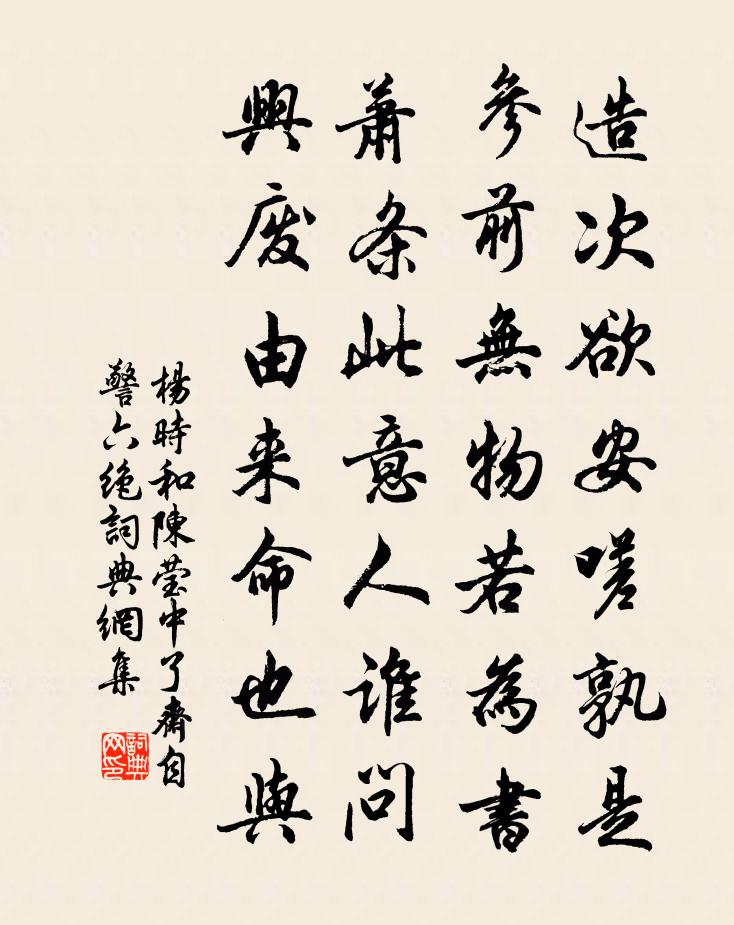 造次欲安嗟孰是
參前無物若為書
蕭条此意人誰問
興廢由来命也與
楊時和陳瑩中了齋自
警六绝詞典網集
詞典网印